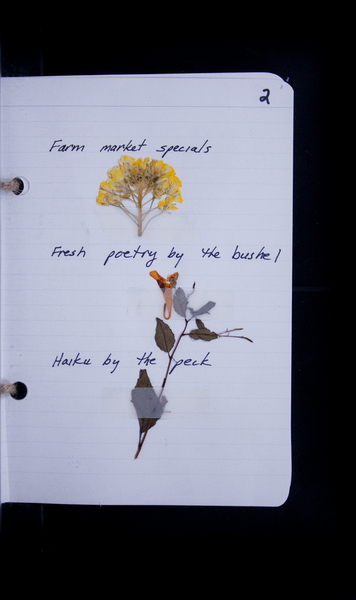 2
Farm market specials
Fresh poetry by the bushel
Haiku by the peck